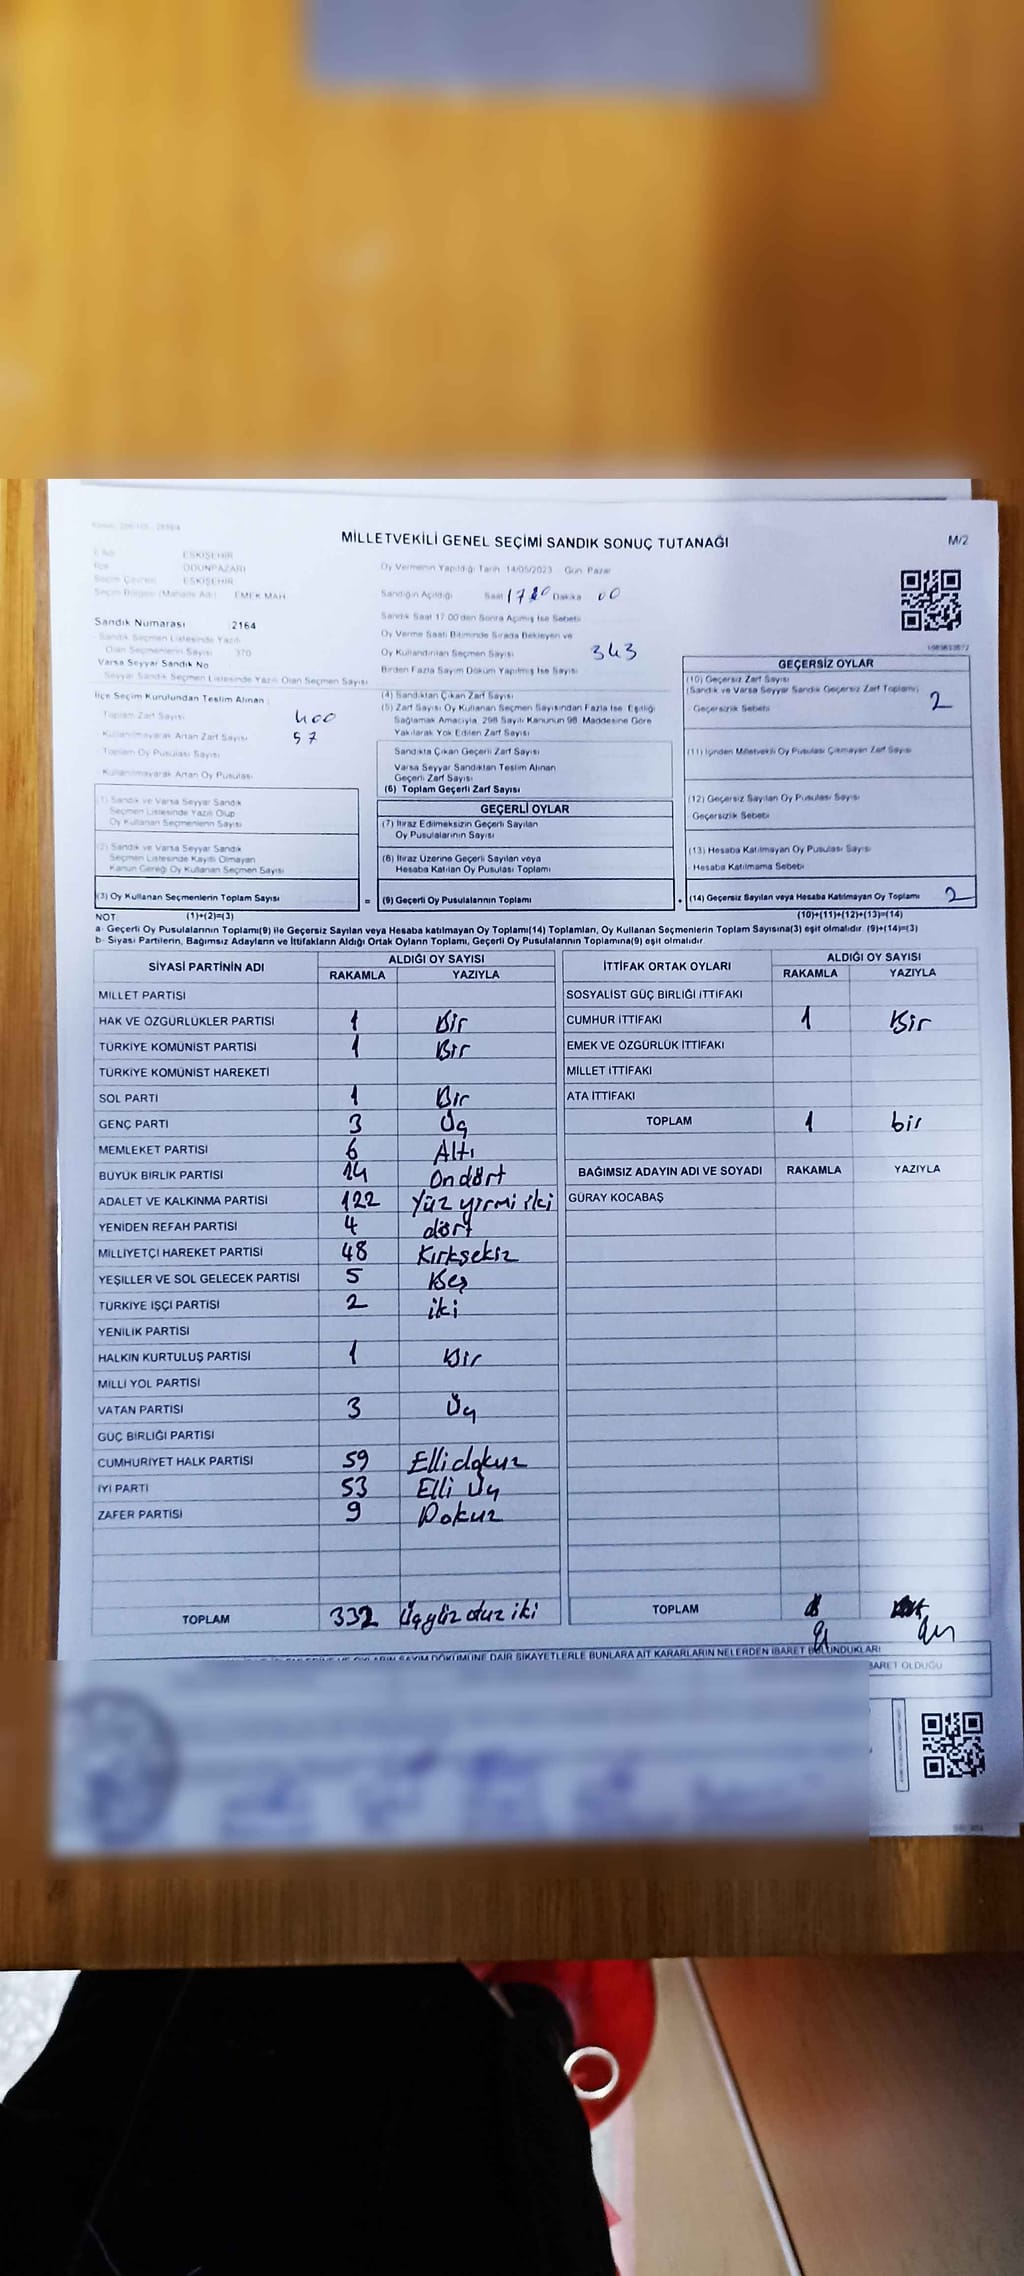 MİLLETVEKİLİ GENEL SEÇİMİ SANDIK SONUÇ TUTANAĞI M/2
İl Adı ESKİŞEHİR
İlçe ODUNPAZARI
Seçim Çevresi ESKİŞEHİR
Seçim Bölgesi (Mahalle Adı) EMEK MAH
Sandık Numarası 2164
Sandık Seçmen Listesinde Yazılı
Olan Seçmenlerin Sayısı 370
Varsa Seyyar Sandık No
Seyyar Sandık Seçmen Listesinde Yazılı Olan Seçmen Sayısı
İlçe Seçim Kurulundan Teslim Alınan :
Toplam Zarf Sayısı 400
Kullanılmayarak Artan Zarf Sayısı 57
Toplam Oy Pusulası Sayısı
Kullanılmayarak Artan Oy Pusulası
(1) Sandık ve Varsa Seyyar Sandık
Seçmen Listesinde Yazılı Olup
Oy Kullanan Seçmenlerin Sayısı
(2) Sandık ve Varsa Seyyar Sandık
Seçmen Listesinde Kayıtlı Olmayan
Kanun Gereği Oy Kullanan Seçmen Sayısı
(3) Oy Kullanan Seçmenlerin Toplam Sayısı
Oy Vermenin Yapıldığı Tarih 14/05/2023 Gün: Pazar
Sandığın Açıldığı Saat Dakika 00
Sandık Saat 17.00'den Sonra Açılmış İse Sebebi
Oy Verme Saati Bitiminde Sırada Bekleyen ve
Oy Kullandırılan Seçmen Sayısı 343
Birden Fazla Sayım Döküm Yapılmış İse Sayısı
(4) Sandıktan Çıkan Zarf Sayısı
(5) Zarf Sayısı Oy Kullanan Seçmen Sayısından Fazla İse, Eşitliği
Sağlamak Amacıyla, 298 Sayılı Kanunun 98. Maddesine Göre
Yakılarak Yok Edilen Zarf Sayısı
Sandıkta Çıkan Geçerli Zarf Sayısı
Varsa Seyyar Sandıktan Teslim Alınan
Geçerli Zarf Sayısı
(6) Toplam Geçerli Zarf Sayısı
GEÇERLİ OYLAR
(7) İtiraz Edilmeksizin Geçerli Sayılan
Oy Pusulalarının Sayısı
(8) İtiraz Üzerine Geçerli Sayılan veya
Hesaba Katılan Oy Pusulası Toplamı
= (9) Geçerli Oy Pusulalarının Toplamı +
GEÇERSİZ OYLAR
(10) Geçersiz Zarf Sayısı
(Sandık ve Varsa Seyyar Sandık Geçersiz Zarf Toplamı) 2
Geçersizlik Sebebi
(11) İçinden Milletvekili Oy Pusulası Çıkmayan Zarf Sayısı
(12) Geçersiz Sayılan Oy Pusulası Sayısı
Geçersizlik Sebebi
(13) Hesaba Katılmayan Oy Pusulası Sayısı
Hesaba Katılmama Sebebi
(14) Geçersiz Sayılan veya Hesaba Katılmayan Oy Toplamı 2
NOT: (1)+(2)=(3) (10)+(11)+(12)+(13)=(14)
a- Geçerli Oy Pusulalarının Toplamı(9) ile Geçersiz Sayılan veya Hesaba katılmayan Oy Toplamı(14) Toplamları, Oy Kullanan Seçmenlerin Toplam Sayısına(3) eşit olmalıdır. (9)+(14)=(3)
b- Siyasi Partilerin, Bağımsız Adayların ve İttifakların Aldığı Ortak Oyların Toplamı, Geçerli Oy Pusulalarının Toplamına(9) eşit olmalıdır
SİYASİ PARTİNİN ADI ALDIĞI OY SAYISI
RAKAMLA YAZIYLA
MİLLET PARTİSİ
HAK VE ÖZGÜRLÜKLER PARTİSİ 1 Bir
TÜRKİYE KOMÜNİST PARTİSİ 1 Bir
TÜRKİYE KOMÜNİST HAREKETİ
SOL PARTİ 1 Bir
GENÇ PARTİ 3 Üç
MEMLEKET PARTİSİ 6 Altı
BÜYÜK BİRLİK PARTİSİ 14 Ondört
ADALET VE KALKINMA PARTİSİ 122 Yüz yirmi iki
YENİDEN REFAH PARTİSİ 4 dört
MİLLİYETÇİ HAREKET PARTİSİ 48 Kırksekiz
YEŞİLLER VE SOL GELECEK PARTİSİ 5 Beş
TÜRKİYE İŞÇİ PARTİSİ 2 iki
YENİLİK PARTİSİ
HALKIN KURTULUŞ PARTİSİ 1 Bir
MİLLİ YOL PARTİSİ
VATAN PARTİSİ 3 Üç
GÜÇ BİRLİĞİ PARTİSİ
CUMHURİYET HALK PARTİSİ 59 Elli dokuz
İYİ PARTİ 53 Elli Üç
ZAFER PARTİSİ 9 Dokuz
TOPLAM 332 Üçyüz otuz iki
İTTİFAK ORTAK OYLARI ALDIĞI OY SAYISI
RAKAMLA YAZIYLA
SOSYALİST GÜÇ BİRLİĞİ İTTİFAKI
CUMHUR İTTİFAKI 1 Bir
EMEK VE ÖZGÜRLÜK İTTİFAKI
MİLLET İTTİFAKI
ATA İTTİFAKI
TOPLAM 1 bir
BAĞIMSIZ ADAYIN ADI VE SOYADI RAKAMLA YAZIYLA
GÜRAY KOCABAŞ
TOPLAM
OYLARIN SAYIM DÖKÜMÜNE DAİR ŞİKAYETLERLE BUNLARA AİT KARARLARIN NELERDEN İBARET BULUNDUKLARI
İBARET OLDUĞU